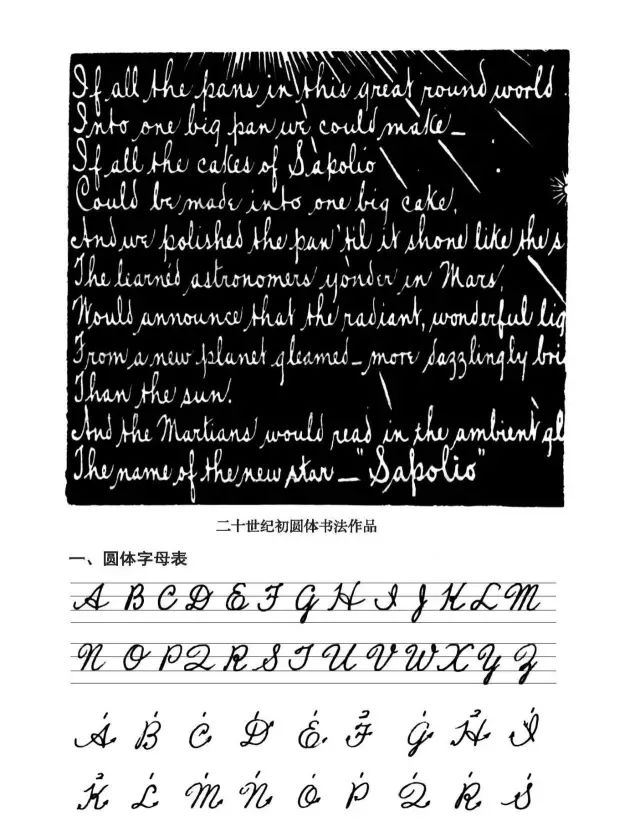 If all the pans in this great round world
Into one big pan we could make—
If all the cakes of Sapolio
Could be made into one big cake,
And we polished the pan 'til it shone like the s
The learned astronomers yonder in Mars,
Would announce that the radiant, wonderful lig
From a new planet gleamed—more dazzlingly bri
Than the sun.
And the Martians would read in the ambient gl
The name of the new star—"Sapolio"
二十世纪初圆体书法作品
一、圆体字母表
A B C D E F G H I J K L M
N O P Q R S T U V W X Y Z
A B C D E F G H I
K L M N O P Q R S